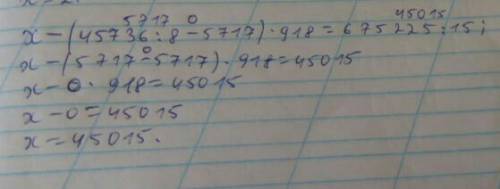 5717 0 45015
x-(45736:8-5717)·918=675225:15;
0
x-(5717-5717)·918=45015
x-0·918=45015
x-0=45015
x=45015.